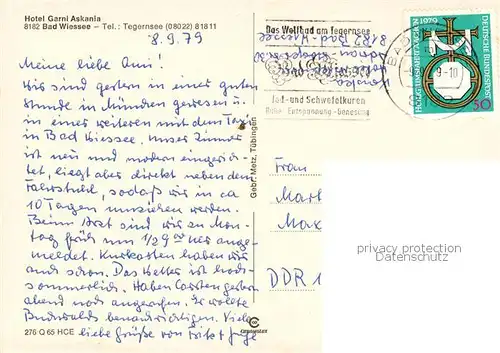 Hotel Garni Askania
8182 Bad Wiessee – Tel.: Tegernsee (08022) 81811
8.9.79
Meine liebe Omi!
Wir sind gestern in einer guten
Stunde in München gewesen u.
in einer weiteren mit dem Taxi
in Bad Wiessee. Unser Zimmer
ist neu und modern eingerich-
tet, liegt aber direkt neben dem
Fahrstuhl, sodaß wir in ca
10 Tagen umziehen werden.
Beim Arzt sind wir zu Mon-
tag früh um 1/2 9 00 her ange-
meldet. Kurkarten haben wir
auch schon. Das Wetter ist hoch-
sommerlich. Haben Carsten gestern
abend noch angerufen. Er wollte
Buchwalds benachrichtigen. Viele
liebe Grüße von Fritz + Inge
276 Q 65 HCE
Gebr. Metz, Tübingen
Das Weltbad am Tegernsee
8182 Bad Wiessee
Jod- und Schwefelkuren
Ruhe · Entspannung · Genesung
9-10
1979
DEUTSCHE BUNDESPOST
HOLZGINSFAHRT AACHEN
50
Frau
Mart
Max
DDR 1
privacy protection